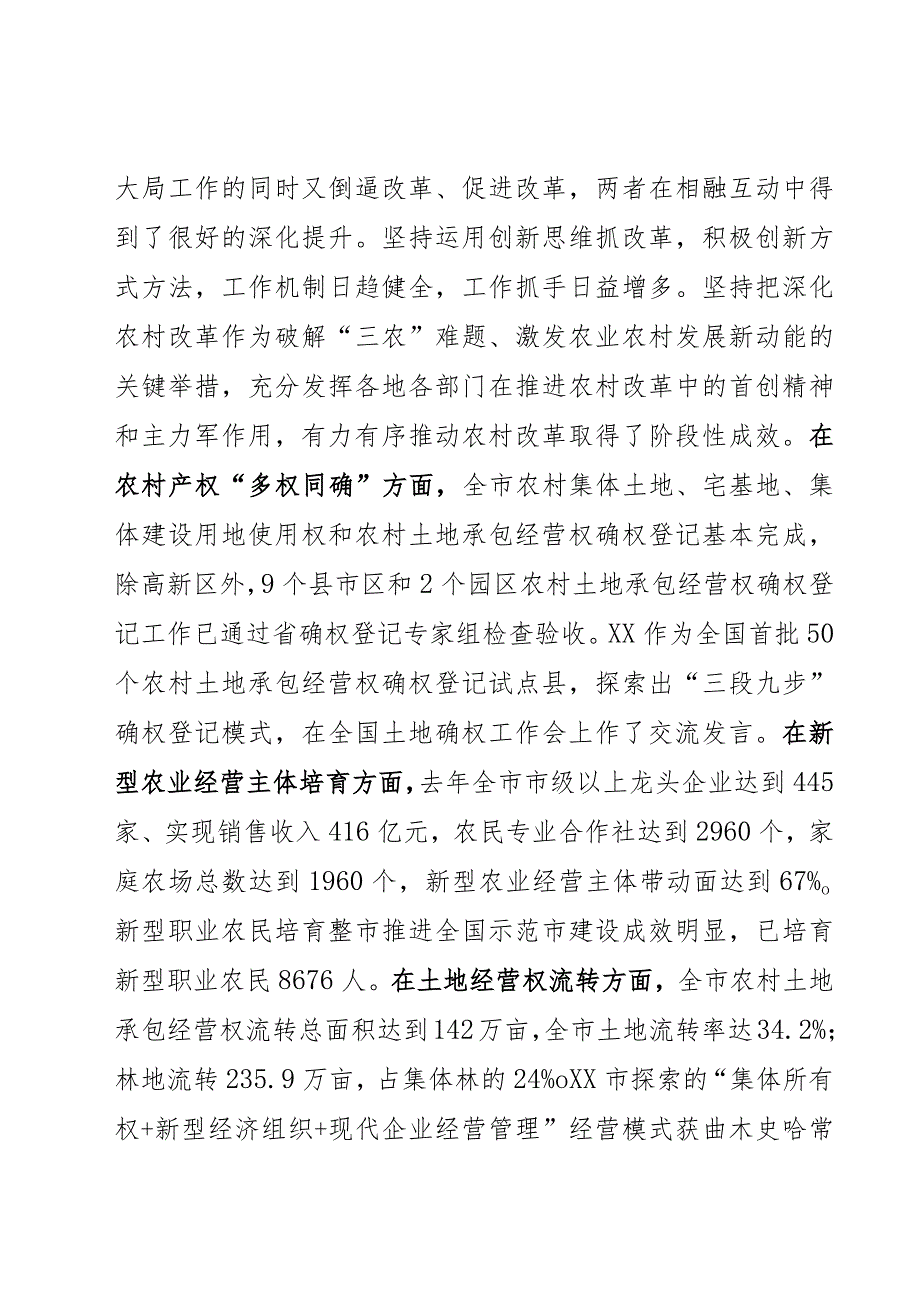 大局工作的同时又倒逼改革、促进改革，两者在相融互动中得
到了很好的深化提升。坚持运用创新思维抓改革，积极创新方
式方法，工作机制日趋健全，工作抓手日益增多。坚持把深化
农村改革作为破解“三农”难题、激发农业农村发展新动能的
关键举措，充分发挥各地各部门在推进农村改革中的首创精神
和主力军作用，有力有序推动农村改革取得了阶段性成效。在
农村产权“多权同确”方面，全市农村集体土地、宅基地、集
体建设用地使用权和农村土地承包经营权确权登记基本完成，
除高新区外,9个县市区和2个园区农村土地承包经营权确权登
记工作已通过省确权登记专家组检查验收。XX作为全国首批50
个农村土地承包经营权确权登记试点县，探索出“三段九步”
确权登记模式，在全国土地确权工作会上作了交流发言。在新
型农业经营主体培育方面,去年全市市级以上龙头企业达到445
家、实现销售收入416亿元，农民专业合作社达到2960个，家
庭农场总数达到1960个，新型农业经营主体带动面达到67‰
新型职业农民培育整市推进全国示范市建设成效明显，已培育
新型职业农民8676人。在土地经营权流转方面，全市农村土地
承包经营权流转总面积达到142万亩,全市土地流转率达34.2%;
林地流转235.9万亩，占集体林的24%oXX市探索的“集体所有
权+新型经济组织+现代企业经营管理”经营模式获曲木史哈常